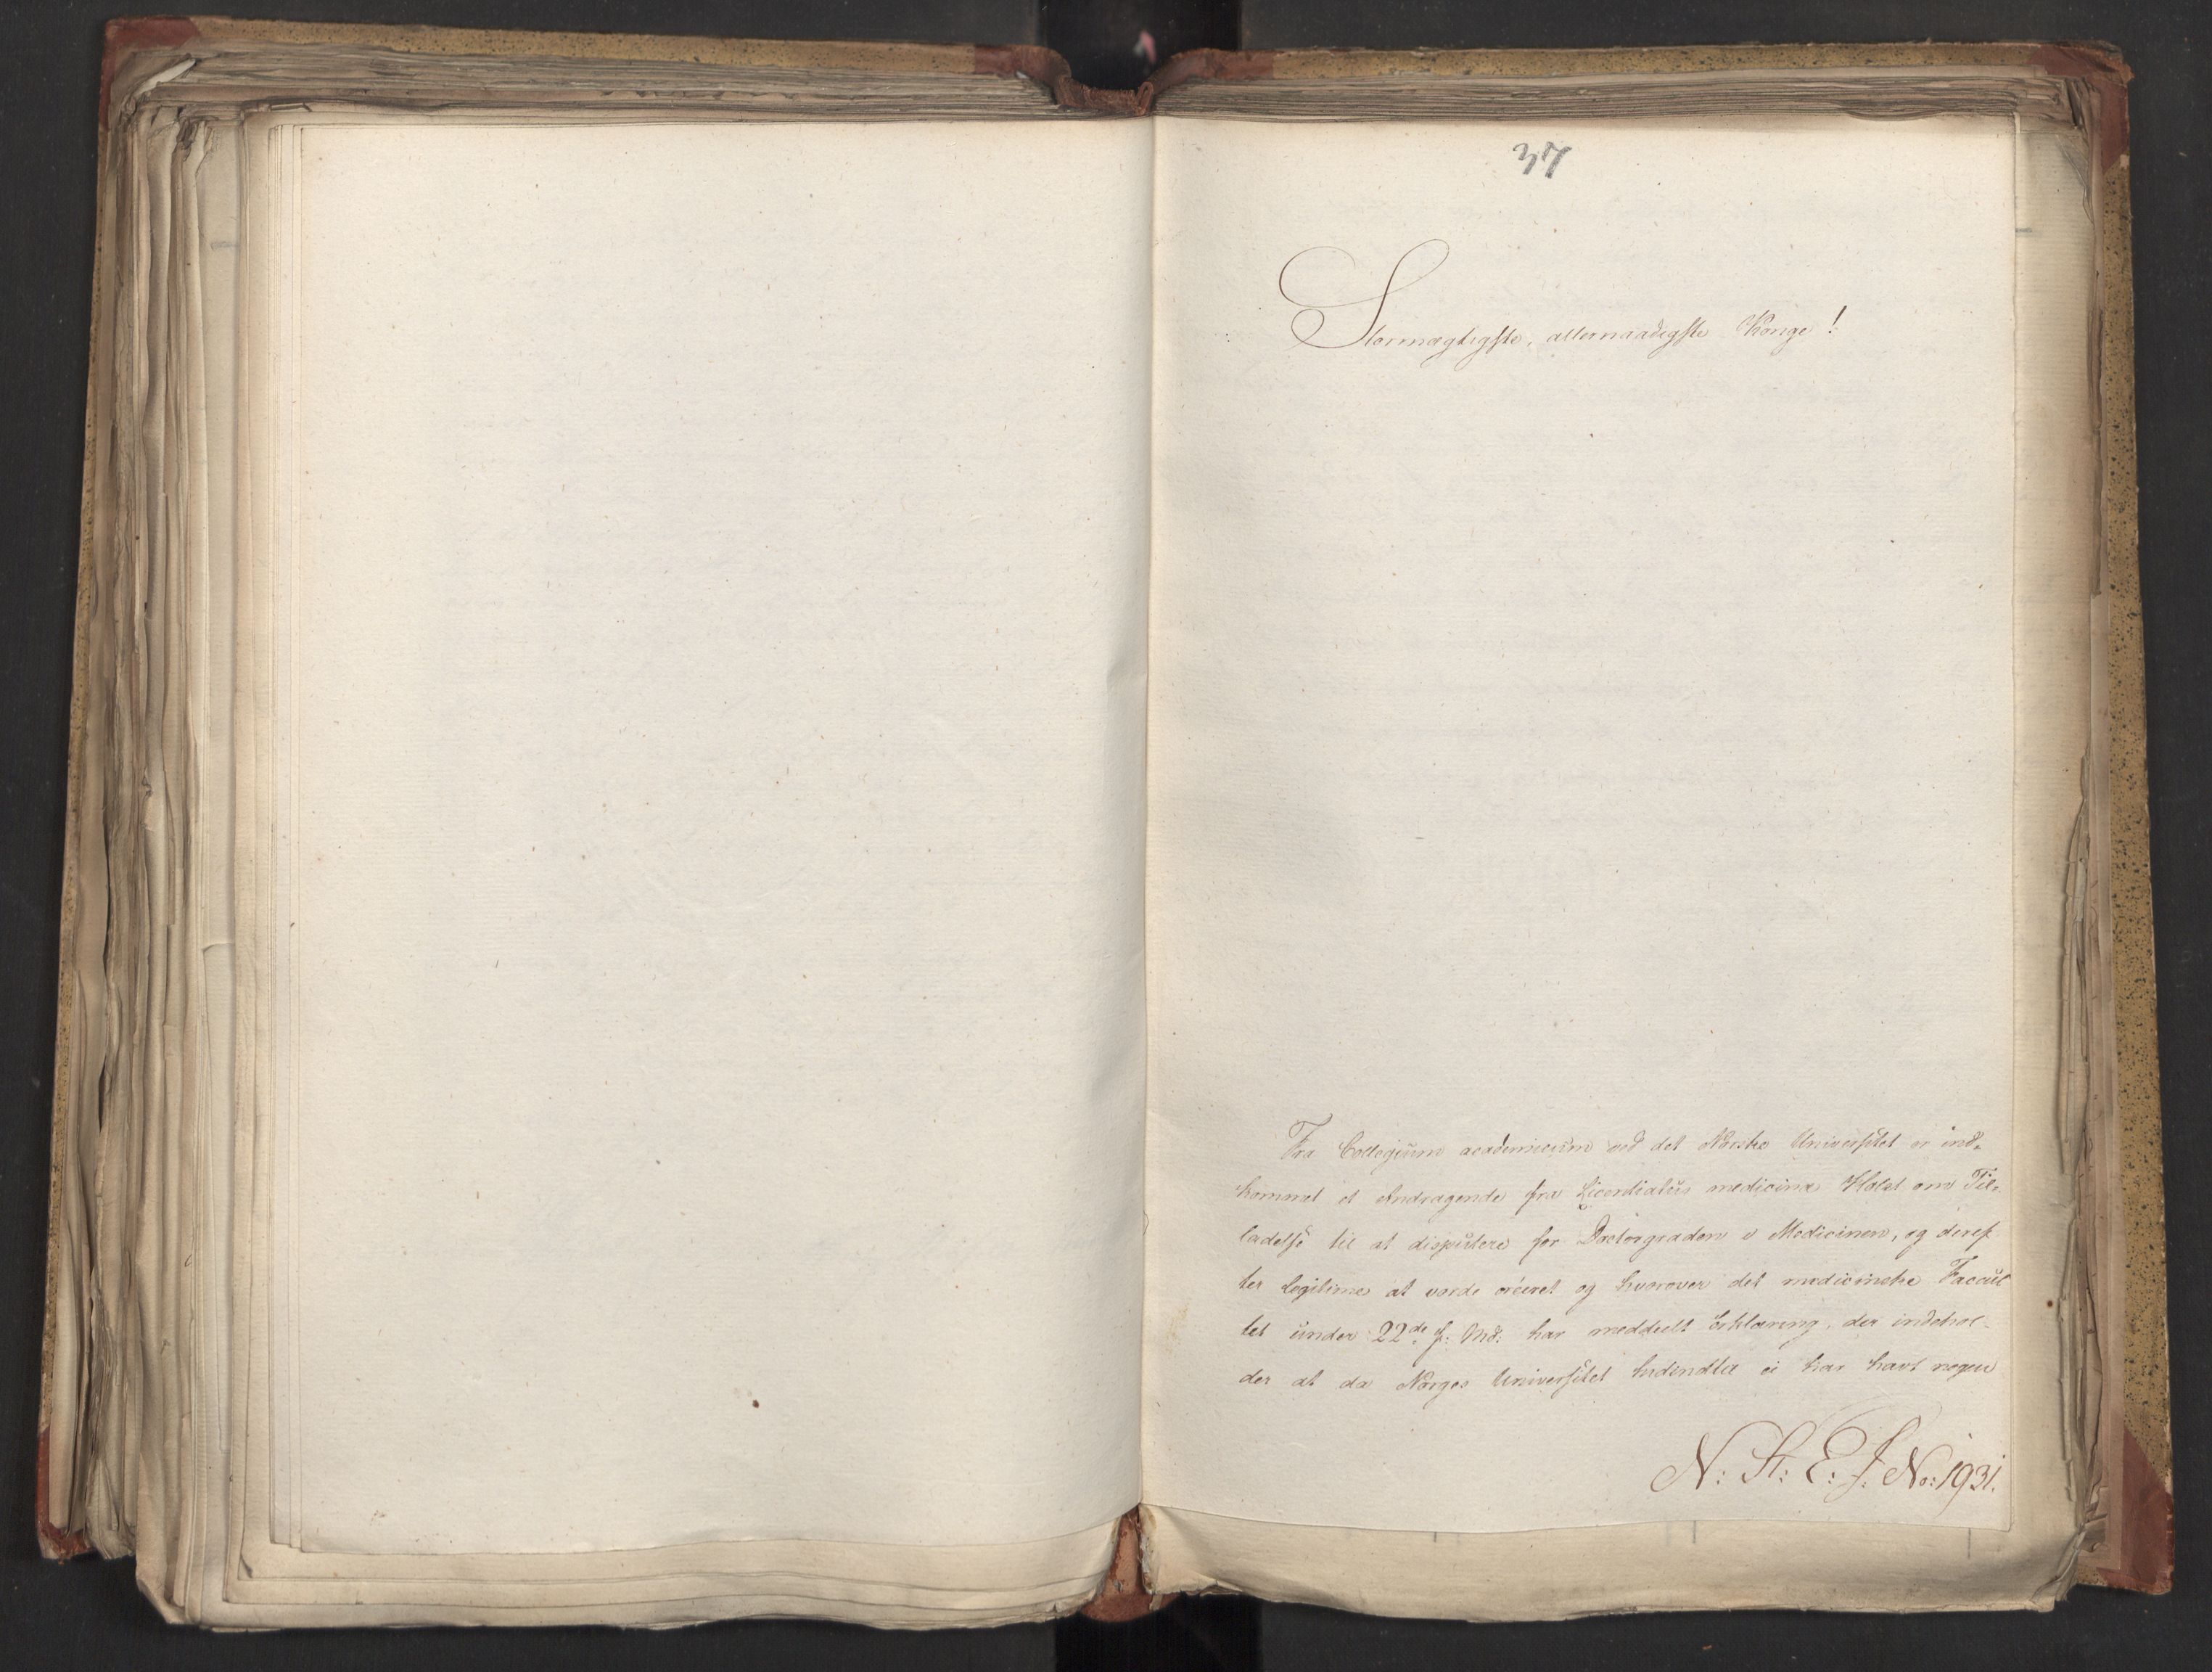 37
Stormægtigste, allernaadigste Konge!
Fra Collegium academicum ved det Norske Universitet er ind-
kommet et Andragende fra Licentiatus medicinæ Holst om Til-
ladelse til at disputere for Doctorgraden i Medicinen, og deref
ter legitime at vorde creeret og hvorover det medicinske Facul
tet under 22de f: Md: har meddeelt Erklæring, der indehol-
der at da Norges Universitet hidindtil ei har havt nogen
N: St: E: J. No: 1931.